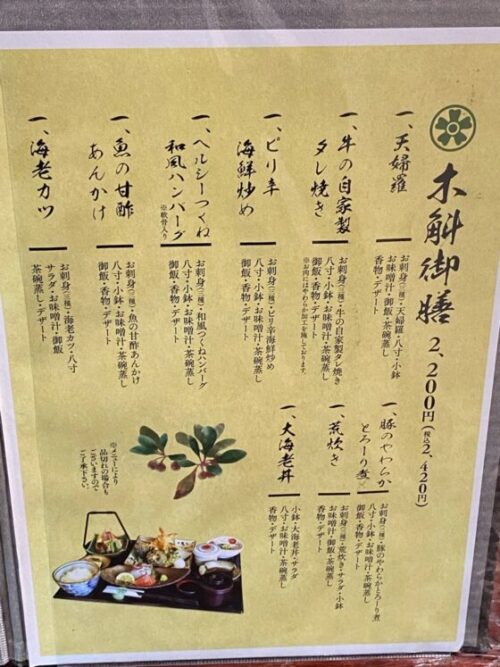 木斛御膳 2,200円(税込2,420円)
一、天婦羅
お刺身(三種)・天婦羅・八寸・小鉢
お味噌汁・御飯・茶碗蒸し
香物・デザート
一、牛の自家製
タレ焼き
お刺身(三種)・牛の自家製タレ焼き
八寸・小鉢・お味噌汁・茶碗蒸し
御飯・香物・デザート
※お肉にはやわらか加工を施しております。
一、ピリ辛
海鮮炒め
お刺身(三種)・ピリ辛海鮮炒め
八寸・小鉢・お味噌汁・茶碗蒸し
御飯・香物・デザート
一、ヘルシーつくね
和風ハンバーグ
※軟骨入り
お刺身(三種)・和風つくねハンバーグ
八寸・小鉢・お味噌汁・茶碗蒸し
御飯・香物・デザート
一、魚の甘酢
あんかけ
お刺身(三種)・魚の甘酢あんかけ
八寸・小鉢・お味噌汁・茶碗蒸し
御飯・香物・デザート
一、海老カツ
お刺身(三種)・海老カツ・八寸
サラダ・お味噌汁・御飯
茶碗蒸し・デザート
一、豚のやわらか
とろーり煮
お刺身(三種)・豚のやわらかとろーり煮
八寸・小鉢・お味噌汁・茶碗蒸し
御飯・香物・デザート
一、荒炊き
お刺身(三種)・荒炊き・サラダ・小鉢
お味噌汁・御飯・茶碗蒸し
香物・デザート
一、大海老丼
小鉢・大海老丼・サラダ
八寸・お味噌汁・茶碗蒸し
香物・デザート
※メニューにより
品切れの場合も
ございますので
ご了承下さい。